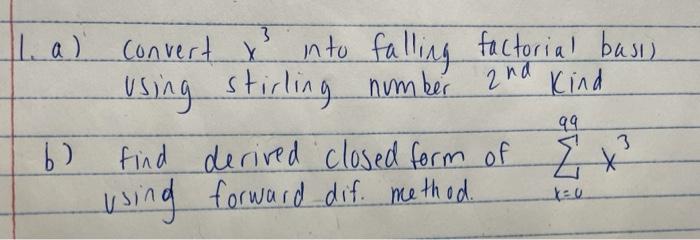 1. a) convert x³ into falling factorial basis
using stirling number 2nd Kind
b) find derived closed form of 99 Σ x=0 x³
using forward dif. method.